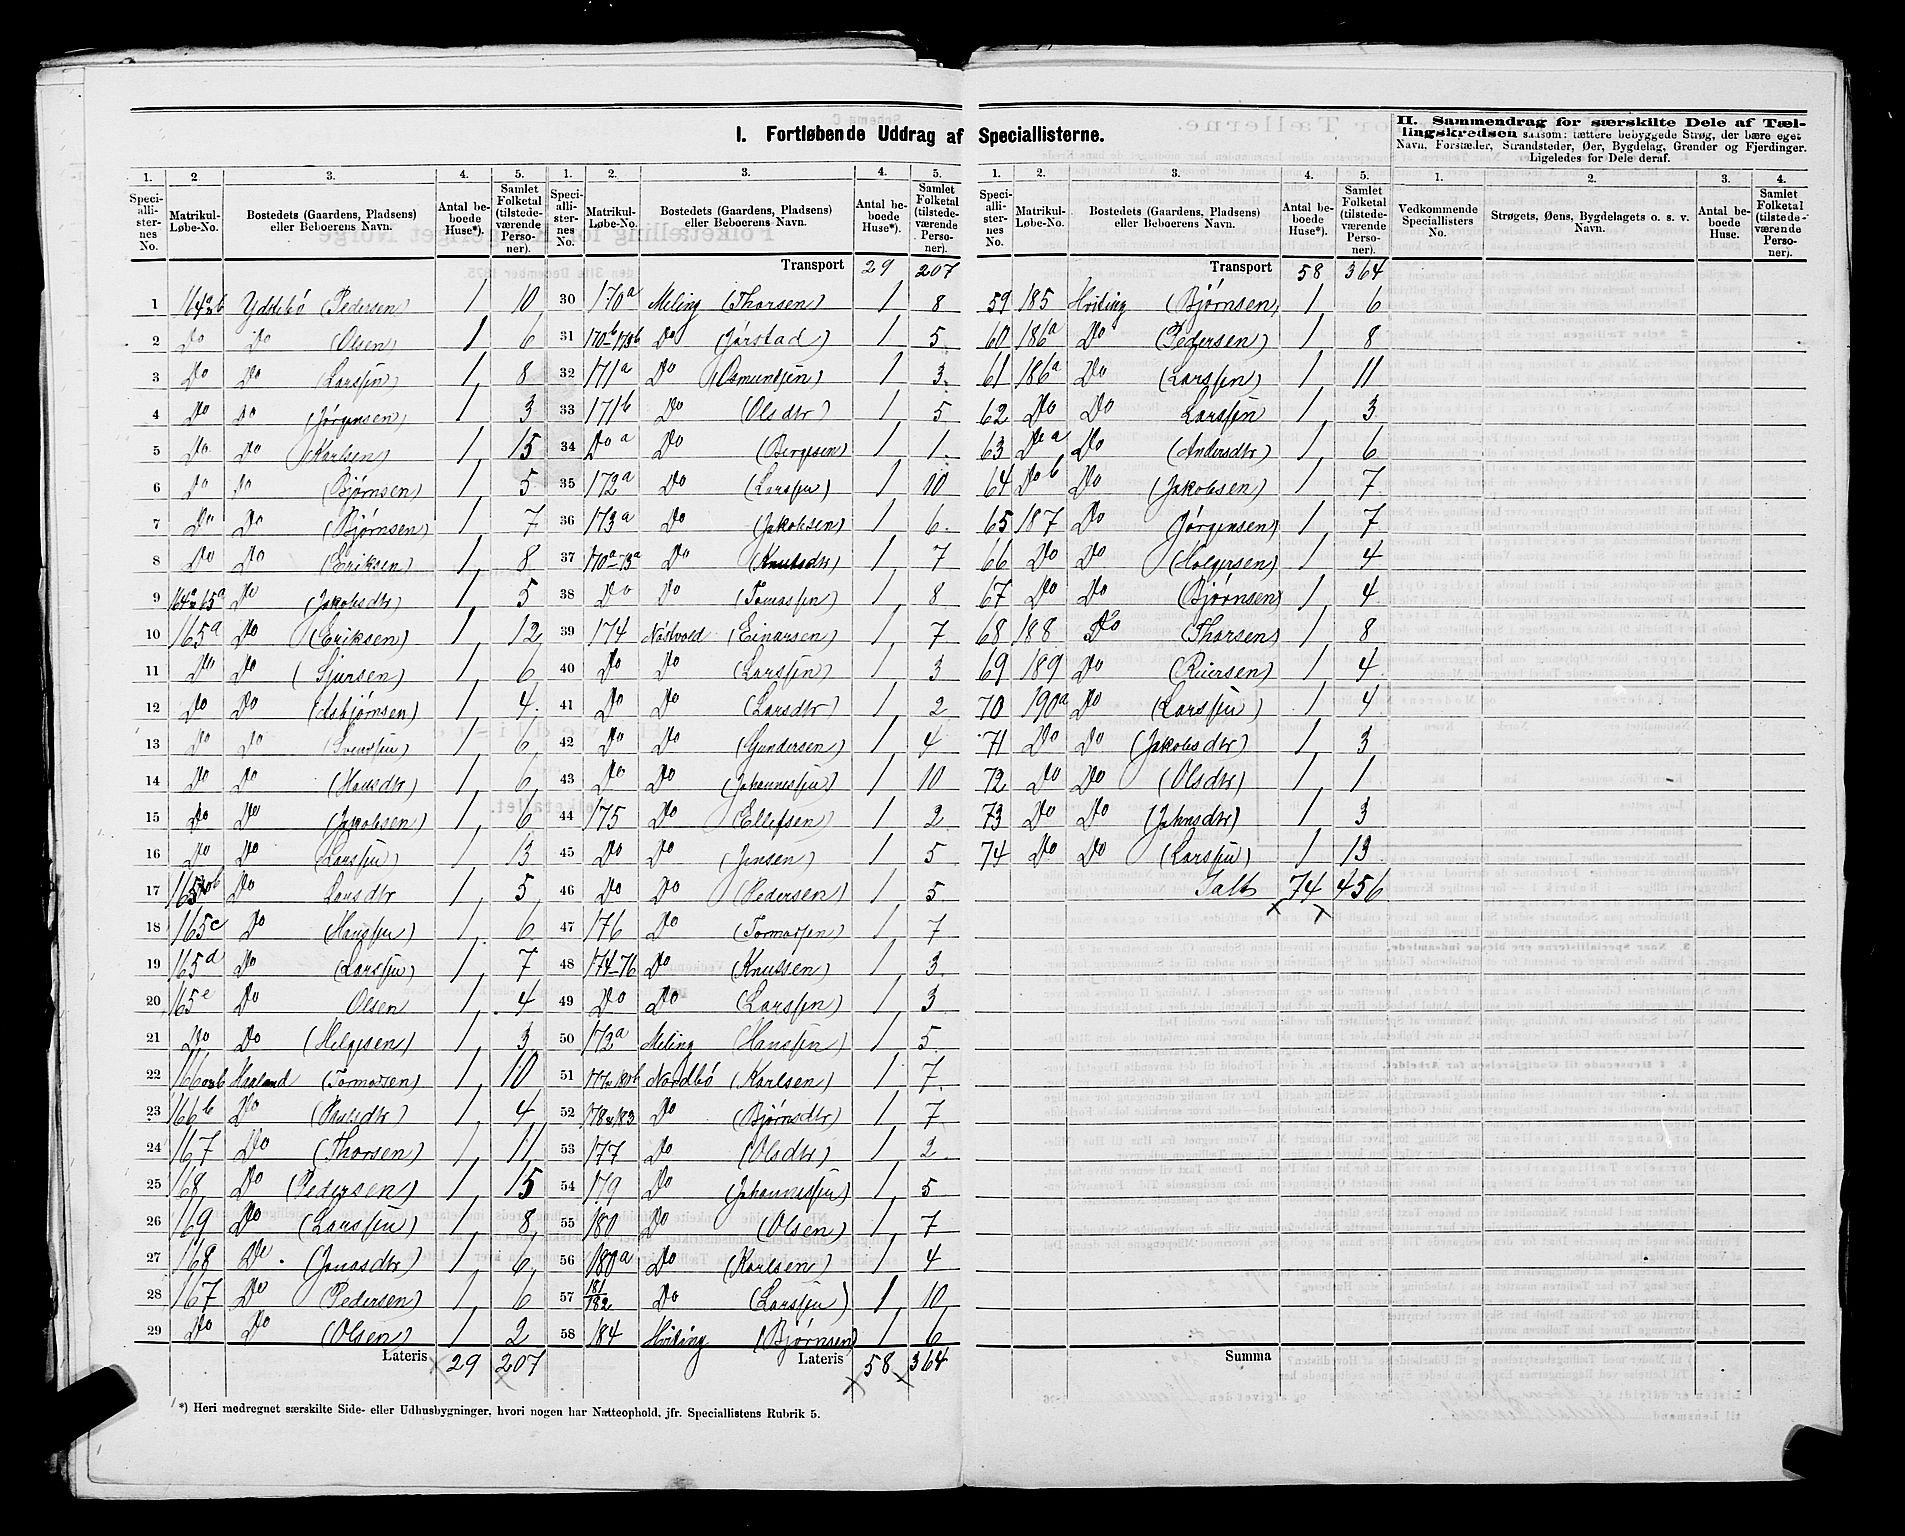 I. Fortløbende Uddrag af Speciallisterne.
1. 2 3. 4. 5. 1. 2. 3. 4. 5.
Speciallisternes No. Matrikul-Løbe-No. Bostedets (Gaardens, Pladsens) eller Beboerens Navn. Antal beboede Huse*). Samlet Folketal (tilstedeværende Personer).
Transport 29 207
1 164a&b Ydstebø (Pedersen) 1 10
2 Do Do (Olsen) 1 6
3 Do Do (Larssen) 1 8
4 Do Do (Jørgensen) 1 3
5 Do Do (Karlsen) 1 15
6 Do Do (Bjørnsen) 1 5
7 Do Do (Bjørnsen) 1 7
8 Do Do (Eriksen) 1 8
9 164a-65a Do (Jakobsdtr) 1 5
10 165a Do (Eriksen) 1 12
11 Do Do (Gjursen) 1 6
12 Do Do (Asbjørnsen) 1 4
13 Do Do (Svendsen) 1 6
14 Do Do (Hansdtr) 1 6
15 Do Do (Jakobsen) 1 6
16 Do Do (Larssen) 1 13
17 Do Larsdtr 1 5
18 165c Do (Hanssen) 1 6
19 165d Do (Larssen) 1 7
20 165e Do Olsen 1 4
21 Do Do (Helgesen) 1 3
22 Haaland (Tormodsen) 1 10
23 166b Do 1 4
24 167 Do (Thorsen) 1 11
25 168 Do (Pedersen) 1 15
26 169 Do (Larssen) 1 8
27 168 Do (Jonasdtr) 1 6
28 167 Do (Pedersen) 1 6
29 Do Do (Olsen) 1 2
Lateris 29 207
30 170a Meling (Thorsen) 1 8
31 170b-173b Do (Jørstad) 1 5
32 171a Do (Osmundsen) 1 3
33 171b Do (Olsdtr) 1 5
34 Do a Do (Bergesen) 1 1
35 172a Do (Larssen) 1 10
36 173a Do (Jakobsen) 1 6
37 170a-73a Do (Knutsdtr) 1 7
38 Do Do (Tomassen) 1 8
39 174 Nostvold (Einarsen) 1 7
40 Do Do (Larssen) 1 3
41 Do Do (Larsdtr) 1 2
42 Do Do (Gundersen) 1 4
43 Do Do (Johannessen) 1 10
44 175 Do (Ellefsen) 1 2
45 Do Do (Jensen) 1 5
46 Do Do (Pedersen) 1 5
47 176 Do (Tormodsen) 1 7
48 174-76 Do (Knutsen) 1 3
49 Do Do (Larssen) 1 3
50 172a Meling (Hanssen) 1 5
51 Nordbø (Karlsen) 1 7
52 178&183 Do (Bjørnsdtr) 1 7
53 177 Do (Olsdtr) 1 2
54 179 Do (Johannessen) 1 5
55 180 Do (Olsen) 1 7
56 180a Do (Karlsen) 1 4
57 181/182 Do (Larssen) 1 10
58 184 Hviding (Bjørnsen) 1 6
Lateris 58 364
*) Heri medregnet særskilte Side- eller Udhusbygninger, hvori nogen har Natteophold, jfr. Speciallistens Rubrik 5.
1. 2. 3. 4. 5.
Speciallisternes No. Matrikul-Løbe-No. Bostedets (Gaardens, Pladsens) eller Beboerens Navn. Antal beboede Huse*). Samlet Folketal (tilstedeværende Personer).
Transport 58 364
59 185 Hviding (Bjørnsen) 1 6
60 186a Do (Pedersen) 1 8
61 186a Do (Larssen) 1 11
62 Do Do Larssen 1 3
63 Do a Do (Andersdtr) 1 6
64 Do b Do (Jakobsen) 1 7
65 187 Do (Jørgensen) 1 7
66 Do Do (Holgersen) 1 4
67 Do Do (Bjørnsen) 1 4
68 188 Do (Thorsen) 1 8
69 189 Do (Reiersen) 1 4
70 190a Do (Larssen) 1 4
71 Do Do (Jakobsdtr) 1 3
72 Do Do (Olsdtr) 1 1
73 Do Do (Johnsdtr) 1 3
74 Do Do (Larssen) 1 13
Ialt 74 456
Summa
II. Sammendrag for særskilte Dele af Tællingskredsen saasom: tættere bebyggede Strøg, der bære eget Navn, Forstæder, Strandsteder, Øer, Bygdelag, Grender og Fjerdinger. Ligeledes for Dele deraf.
1. 2. 3. 4.
Vedkommende Speciallisters No. Strøgets, Øens, Bygdelagets o. s. v. Navn. Antal beboede Huse. Samlet Folketal (tilstedeværende Personer).